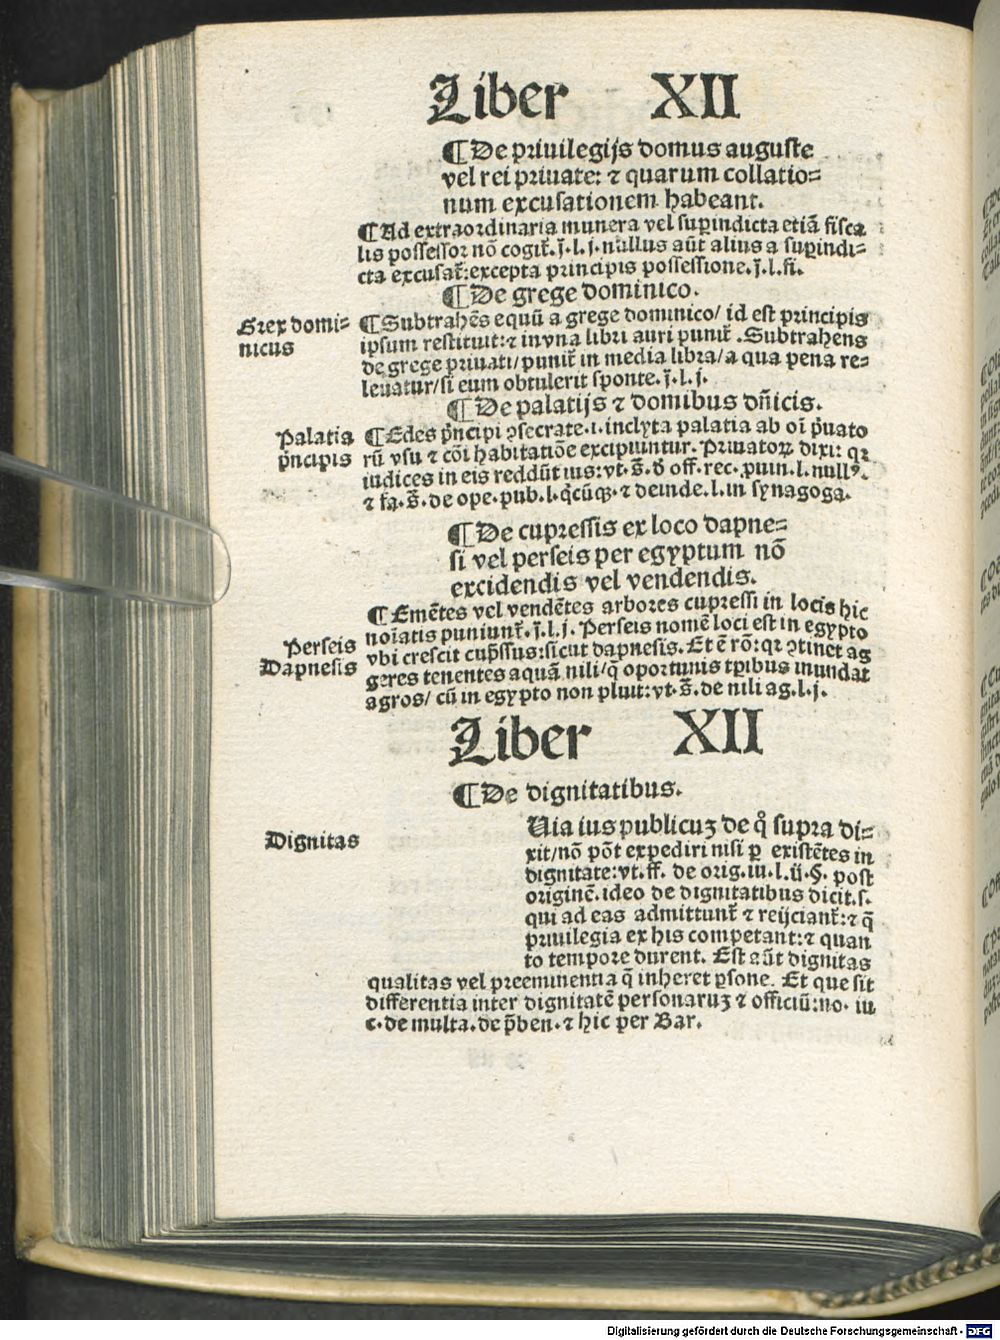 Liber XII
¶De priuilegijs domus auguste
vel rei priuate: ⁊ quarum collatio⸗
num excusationem habeant.
¶Ad extraordinaria munera vel suꝑindicta etiã fisca
lis possessor nõ cogit᷑.j̃.l.j.nullus aũt alius a suꝑindi⸗
cta excusat᷑:excepta principis possessione.j̃.l.fi.
¶De grege dominico.
Grex domi⸗
nicus
¶Subtrahẽs equũ a grege dominico/ id est principis
ipsum restituit:⁊ in vna libri auri punit᷑ .Subtrahens
de grege priuati/punit᷑ in media libra/a qua pena re⸗
leuatur/si eum obtulerit sponte.j̃.l.j.
¶De palatijs ⁊ domibus dñicis.
Palatia
p̃ncipis
¶Edes p̃ncipi ꝯsecrate.i.inclyta palatia ab oĩ p̃uato
rũ vsu ⁊ cõi habitatiõe excipiuntur. Priuatoꝝ dixi: qꝛ
iudices in eis reddũt ius:vt.s̃.d̃ off.rec.puin.l.nullꝰ.
⁊ fa.s̃.de ope.pub.l.q̃cũqꝫ.⁊ deinde.l.in synagoga.
¶De cupressis ex loco dapne⸗
si vel perseis per egyptum nõ
excidendis vel vendendis.
¶Emẽtes vel vendẽtes arbores cupressi in locis hic
noĩatis puniunt᷑.j̃.l.j. Perseis nomẽ loci est in egypto
Perseis
Dapnesis
vbi crescit cup̃ssus:sicut dapnesis. Et ẽ rõ:qꝛ ꝯtinet ag
geres tenentes aquã nili/q̃ oportunis tꝑibus inundat
agros/ cũ in egypto non pluit:vt.s̃.de nili ag.l.j.
Liber XII
¶De dignitatibus.
Dignitas
Uia ius publicuꝫ de q̊ supra di⸗
xit/nõ põt expediri nisi ꝑ existẽtes in
dignitate:vt.ff. de orig.iu.l.ij.§. post
originẽ.ideo de dignitatibus dicit.s.
qui ad eas admittunt᷑ ⁊ reijciant᷑:⁊ q̃
priuilegia ex his competant:⁊ quan
to tempore durent. Est aũt dignitas
qualitas vel preeminentia q̃ inheret ꝑsone. Et que sit
differentia inter dignitatẽ personaruꝫ ⁊ officiũ:no. iu
c.de multa.de p̃ben.⁊ hic per Bar.
Digitalisierung gefördert durch die Deutsche Forschungsgemeinschaft - DFG